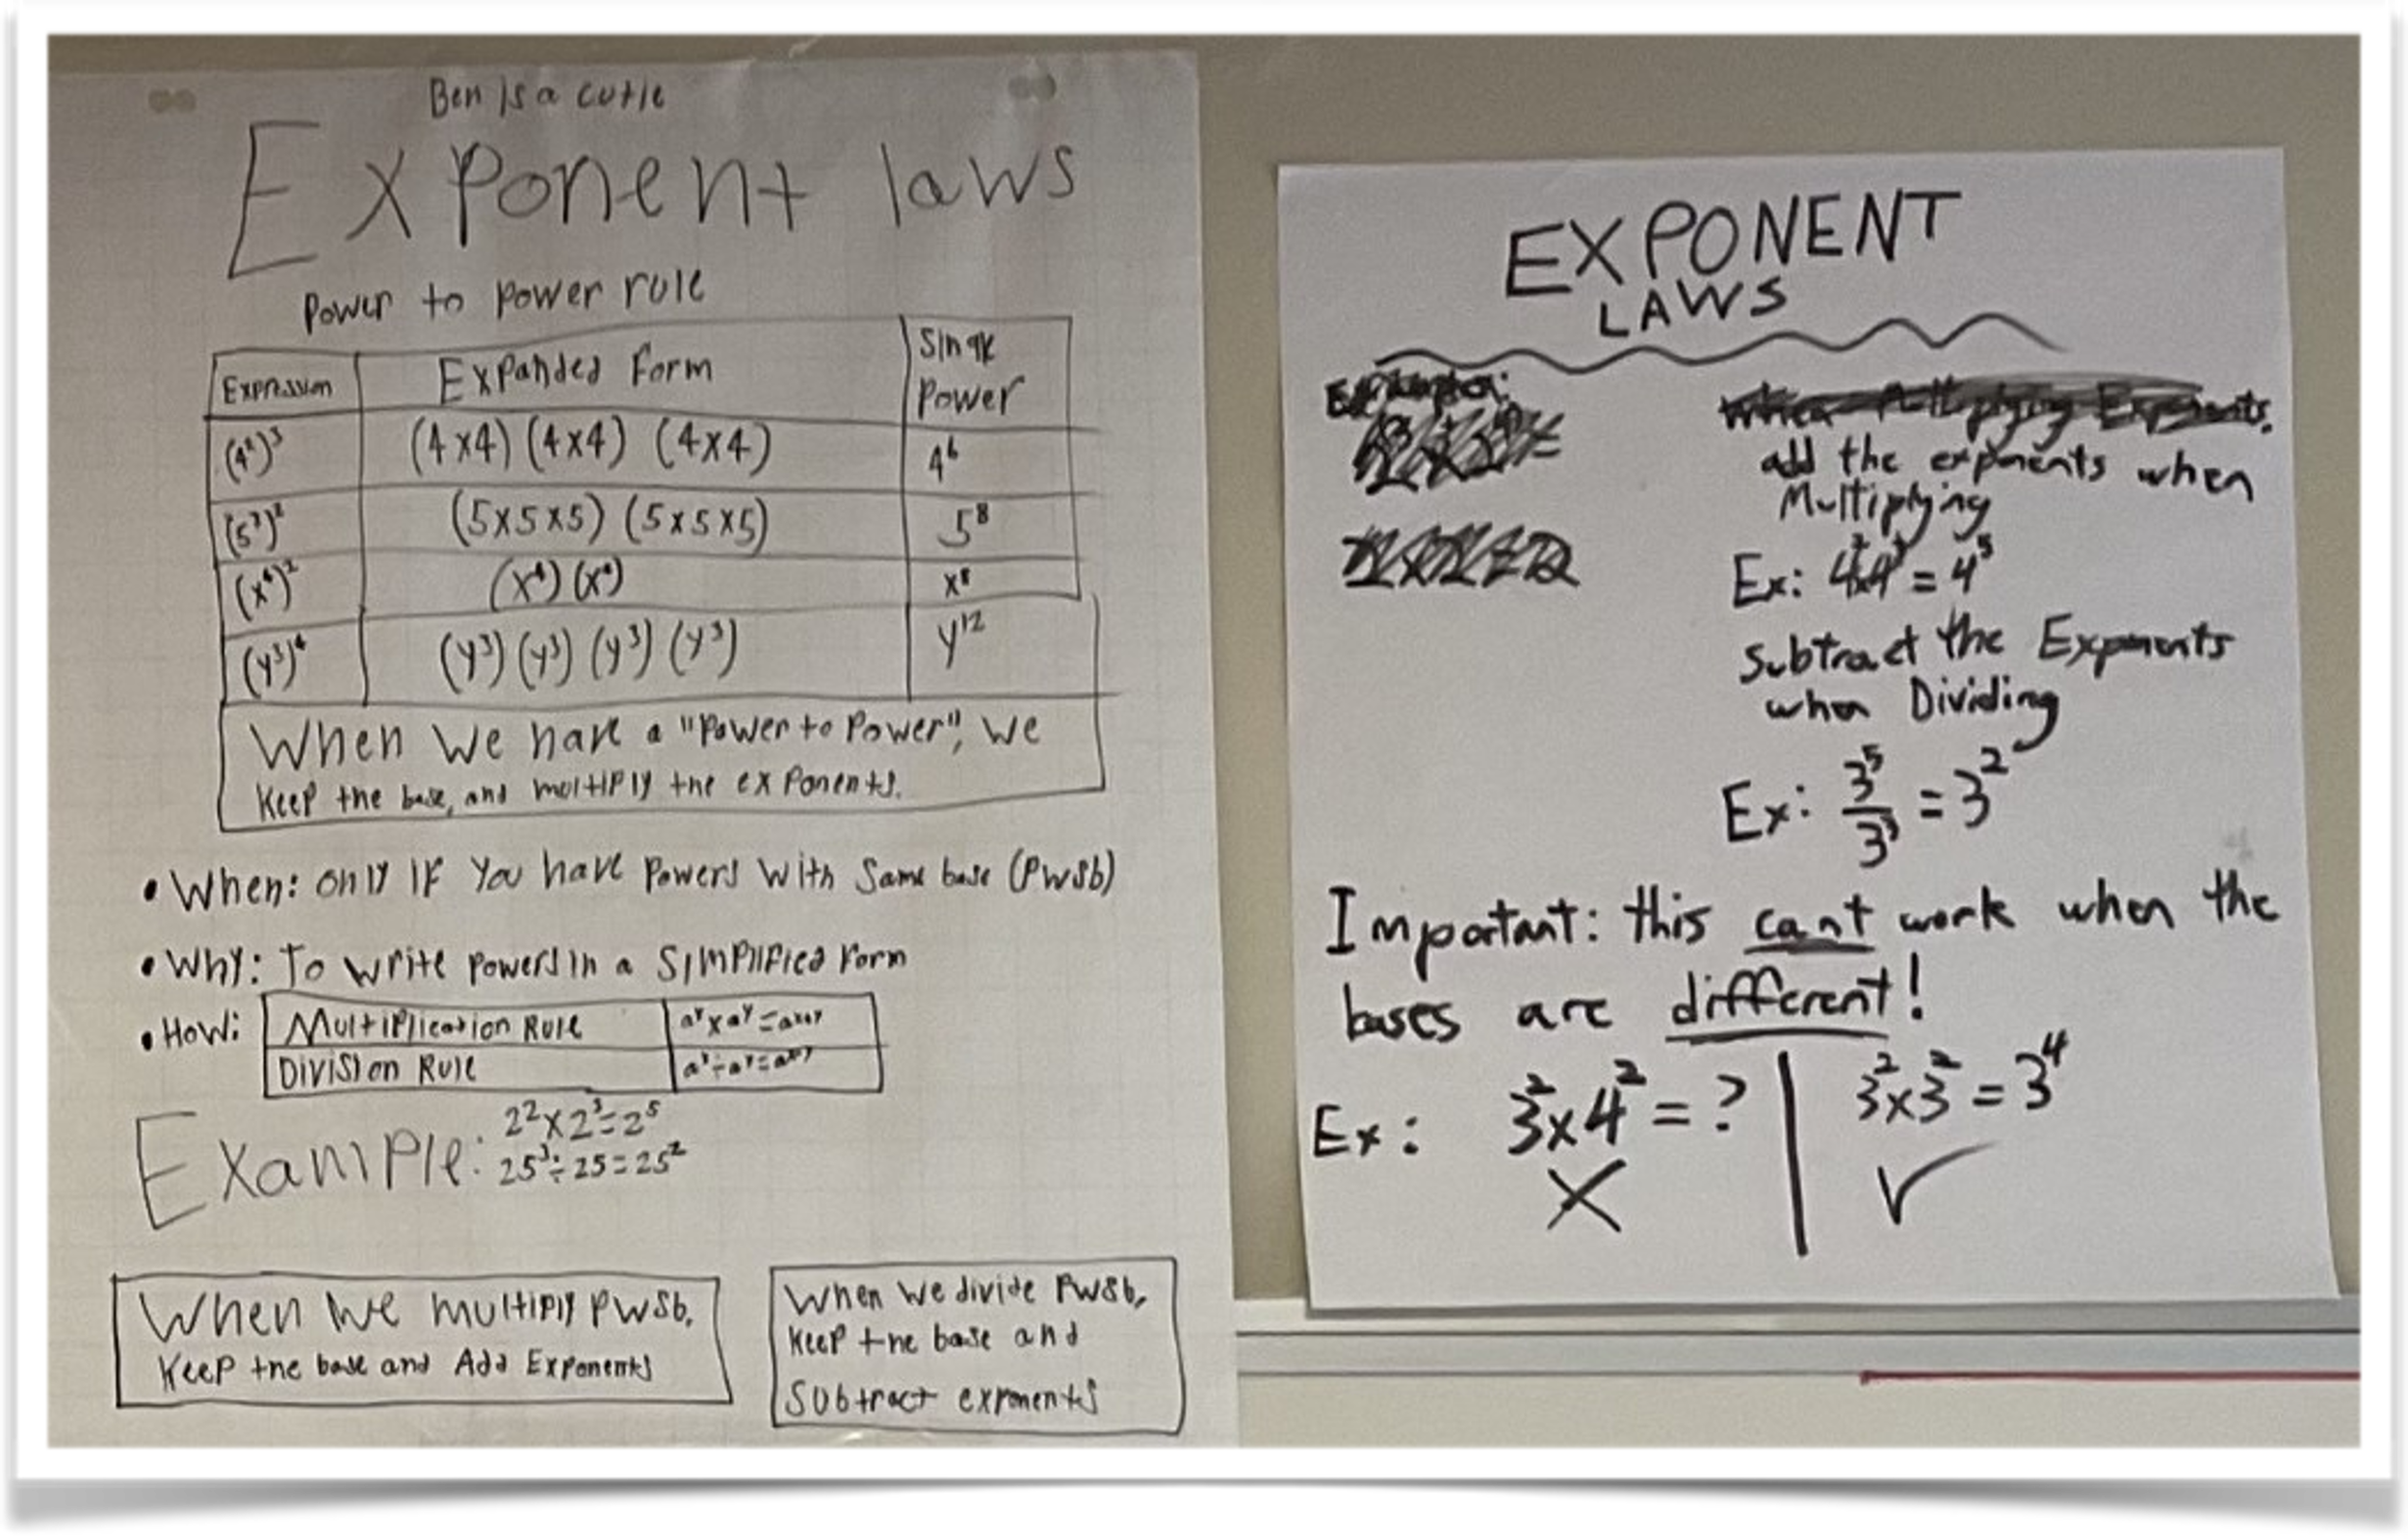 Ben is a cutie
Exponent laws
Power to power rule
Expression Expanded Form Single Power
(4²)³ (4x4) (4x4) (4x4) 4⁶
(5³)² (5x5x5) (5x5x5) 5⁸
(x⁴)² (x⁴) (x⁴) x⁸
(y³)⁴ (y³) (y³) (y³) (y³) y¹²
When we have a "Power to Power", we
Keep the base, and multiply the exponents.
• When: only if you have Powers with Same base (PWSb)
• Why: To write powers in a Simplified Form
• How: Multiplication Rule
Division Rule
Example: 2²x2³=2⁵
25³÷25=25²
When we multiply PWSb,
Keep the base and Add Exponents
When we divide PWSb,
Keep the base and
Subtract exponents
EXPONENT
LAWS
add the exponents when
Multiplying
Ex: 4²x4³=4⁵
Subtract the Exponents
when Dividing
Ex: 3⁵/3³ = 3²
Important: this cant work when the
bases are different!
Ex: 3²x4²=? | 3²x3²=3⁴
X ✓